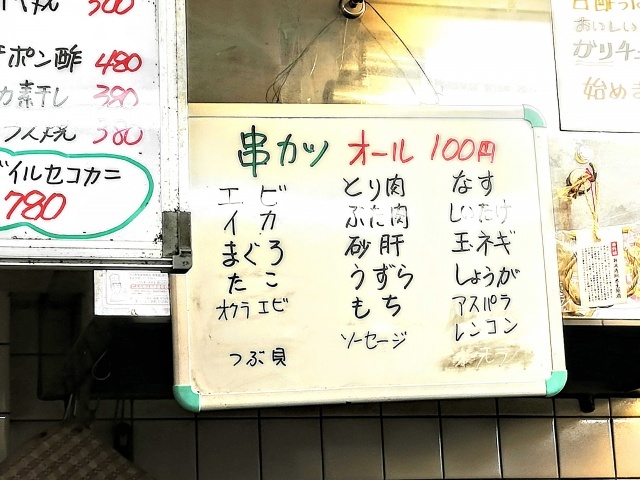 500
ポン酢 480
素干し 380
380
イルセコカニ
780
串カツ オール 100円
エビ
イカ
まぐろ
たこ
オクラエビ
つぶ貝
とり肉
ぶた肉
砂肝
うずら
もち
ソーセージ
なす
しいたけ
玉ネギ
しょうが
アスパラ
レンコン
おいしい
がりチュ
始めま